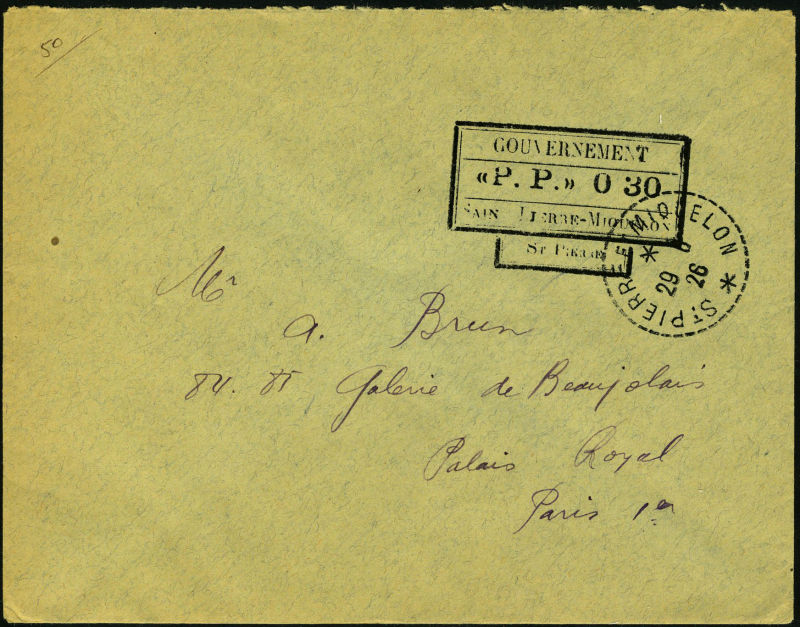 50
GOUVERNEMENT
«P. P.» 0 30
SAIN PIERRE-MIQUELON
ST PIERRE
ST PIERRE ET MIQUELON
29
26
Mr
A. Brun
84. 85 Galerie de Beaujolais
Palais Royal
Paris 1er